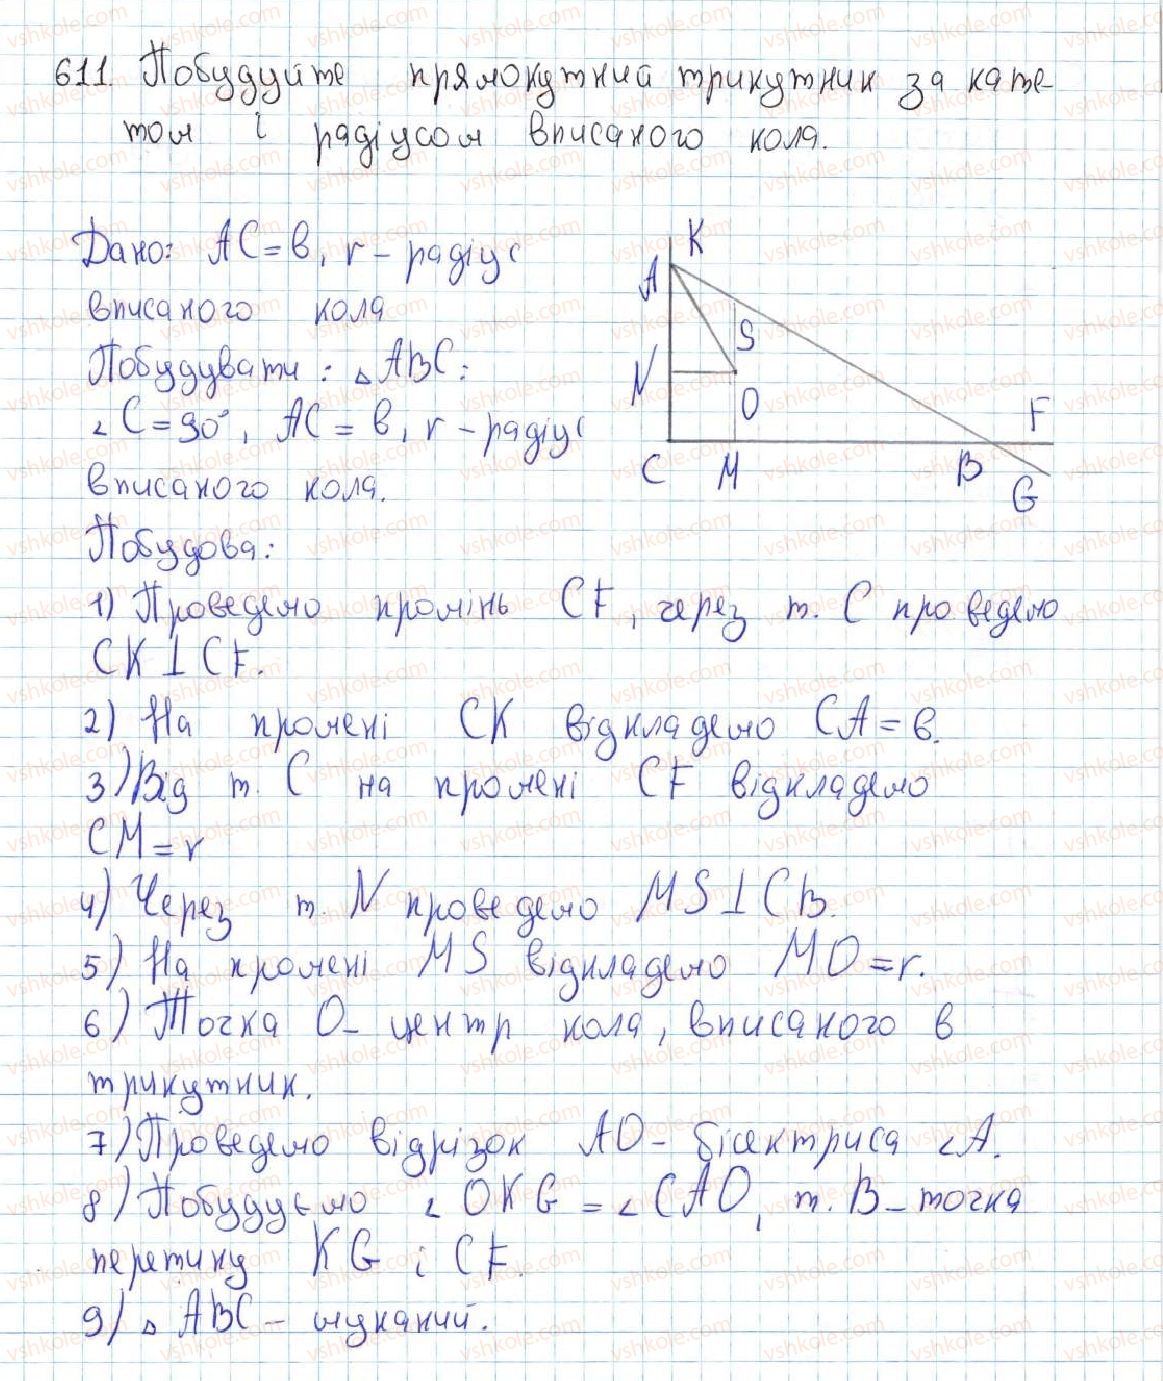 611. Побудуйте прямокутний трикутник за кате-
том і радіусом вписаного кола.
Дано: AC = b, r - радіус
вписаного кола
Побудувати: △ABC:
∠C = 90°, AC = b, r - радіус
вписаного кола.
K
A
S
N
O
F
C M B
G
Побудова:
1) Проведемо промінь CF, через т. C проведемо
CK⊥CF.
2) На промені CK відкладемо CA = b.
3) Від т. C на промені CF відкладемо
CM = r
4) Через т. N проведемо MS⊥CB.
5) На промені MS відкладемо MO = r.
6) Точка O - центр кола, вписаного в
трикутник.
7) Проведемо відрізок AO - бісектриса ∠A.
8) Побудуємо ∠OKG = ∠CAO, т. B - точка
перетину KG і CF.
9) △ABC - шуканий.